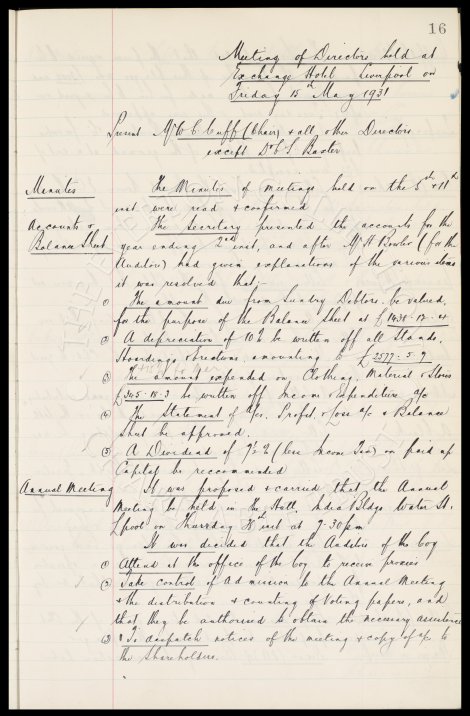 16
Meeting of Directors held at
Exchange Hotel Liverpool on
Friday 15th May 1931
Present Mr W C Cuff (Chair) & all other Directors
except Dr C S Baxter
Minutes
The Minutes of meetings held on the 5th & 11th
inst were read & confirmed
Accounts &
Balance Sheet
The Secretary presented the accounts for the
year ending 2nd inst, and after Mr H Bowler (for the
Auditors) had given explanations of the various items
it was resolved that
(1) The amount due from Sundry Debtors be valued,
for the purpose of the Balance Sheet at £
(2) A depreciation of 10% be written off all Stands,
Hoardings & Erections, amounting to £2577-5-9
(3) The amount expended on Clothing, Material & Stores
£345-18-3 be written off Income & Expenditure a/c
(4) The Statement of a/cs, Profit & Loss a/c & Balance
Sheet be approved.
(5) A Dividend of 7½% (less Income Tax) on paid up
Capital be recommended
Annual Meeting
It was proposed & carried that the Annual
Meeting be held in the Hall, India Bldgs Water St.
L'pool on Thursday inst at 7-30pm
It was decided that the Auditors of the Coy
(1) Attend at the office of the Coy to receive proxies
(2) Take control of Admission to the Annual Meeting
& the distribution & counting of Voting papers, and
that they be authorised to obtain the necessary assistance
(3) To despatch notices of the meeting & copy of a/cs to
the Shareholders.